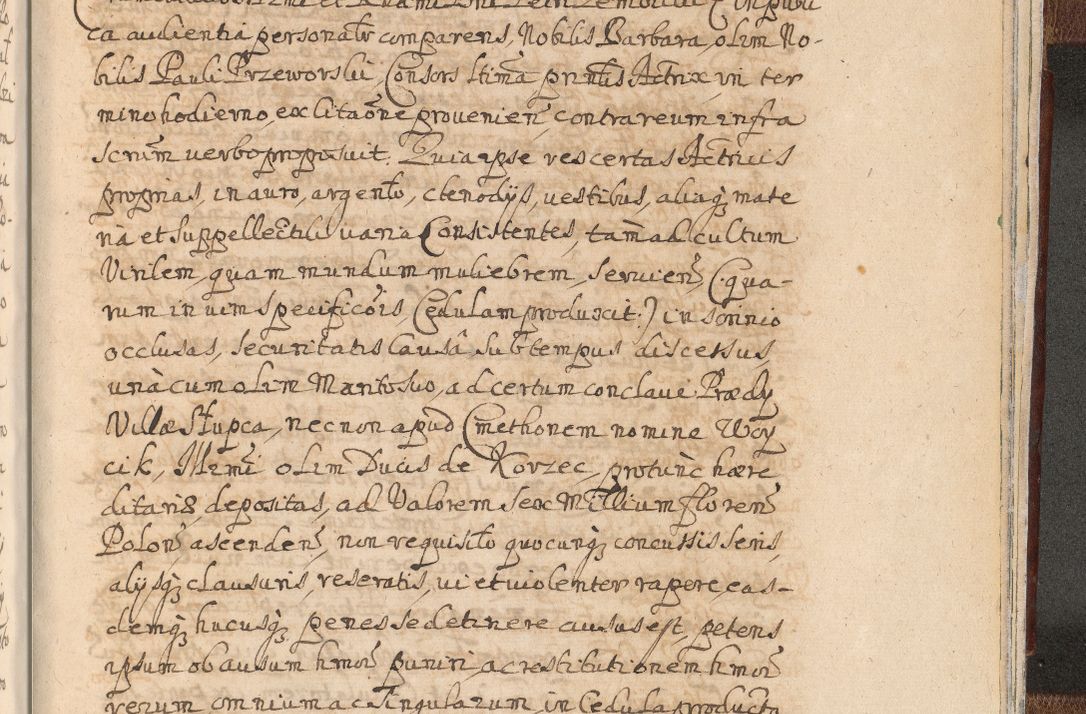 ca audientia personalr comparens, Nobilis Barbara, olim No-
bilis Pauli Przeworski, Consors ltima, prntis Actrix, in ter
mino hodierno, ex citaone provenien, contra reum infra
scrum verbo proposuit. Quia ipse res certas Actricis
proprias, in auro, argento, clenodijs, vestibus, aliaq mate
ria et suppellectili varia Consistentes, tam ad cultum
Virilem, quam mundum muliebrem, servien (quα-
rum in vim specificois, Cedulam produxit:) in scrinio
occlusas, securitatis Causa, sub tempus discessus,
una cum olim Marito suo, ad certum conclave Prædy
Villæ Stupca, nec non apud Cmethonem nomine Woy
cik, Illrmi olim Ducis de Korzec, protunc hære
ditaris, depositas, ad Valorem sex Millium floren
Polon ascenden, non requisito quocunq, concussis seris,
alijsq clausuris, reseratis, vi et violenter rapere, eas-
demq hucusq, penes se detinere ausus est, petens
ipsum ob ausum hmoi puniri, ac restitutionem hmoi
rerum omnium ac singularum, in Cedula producta